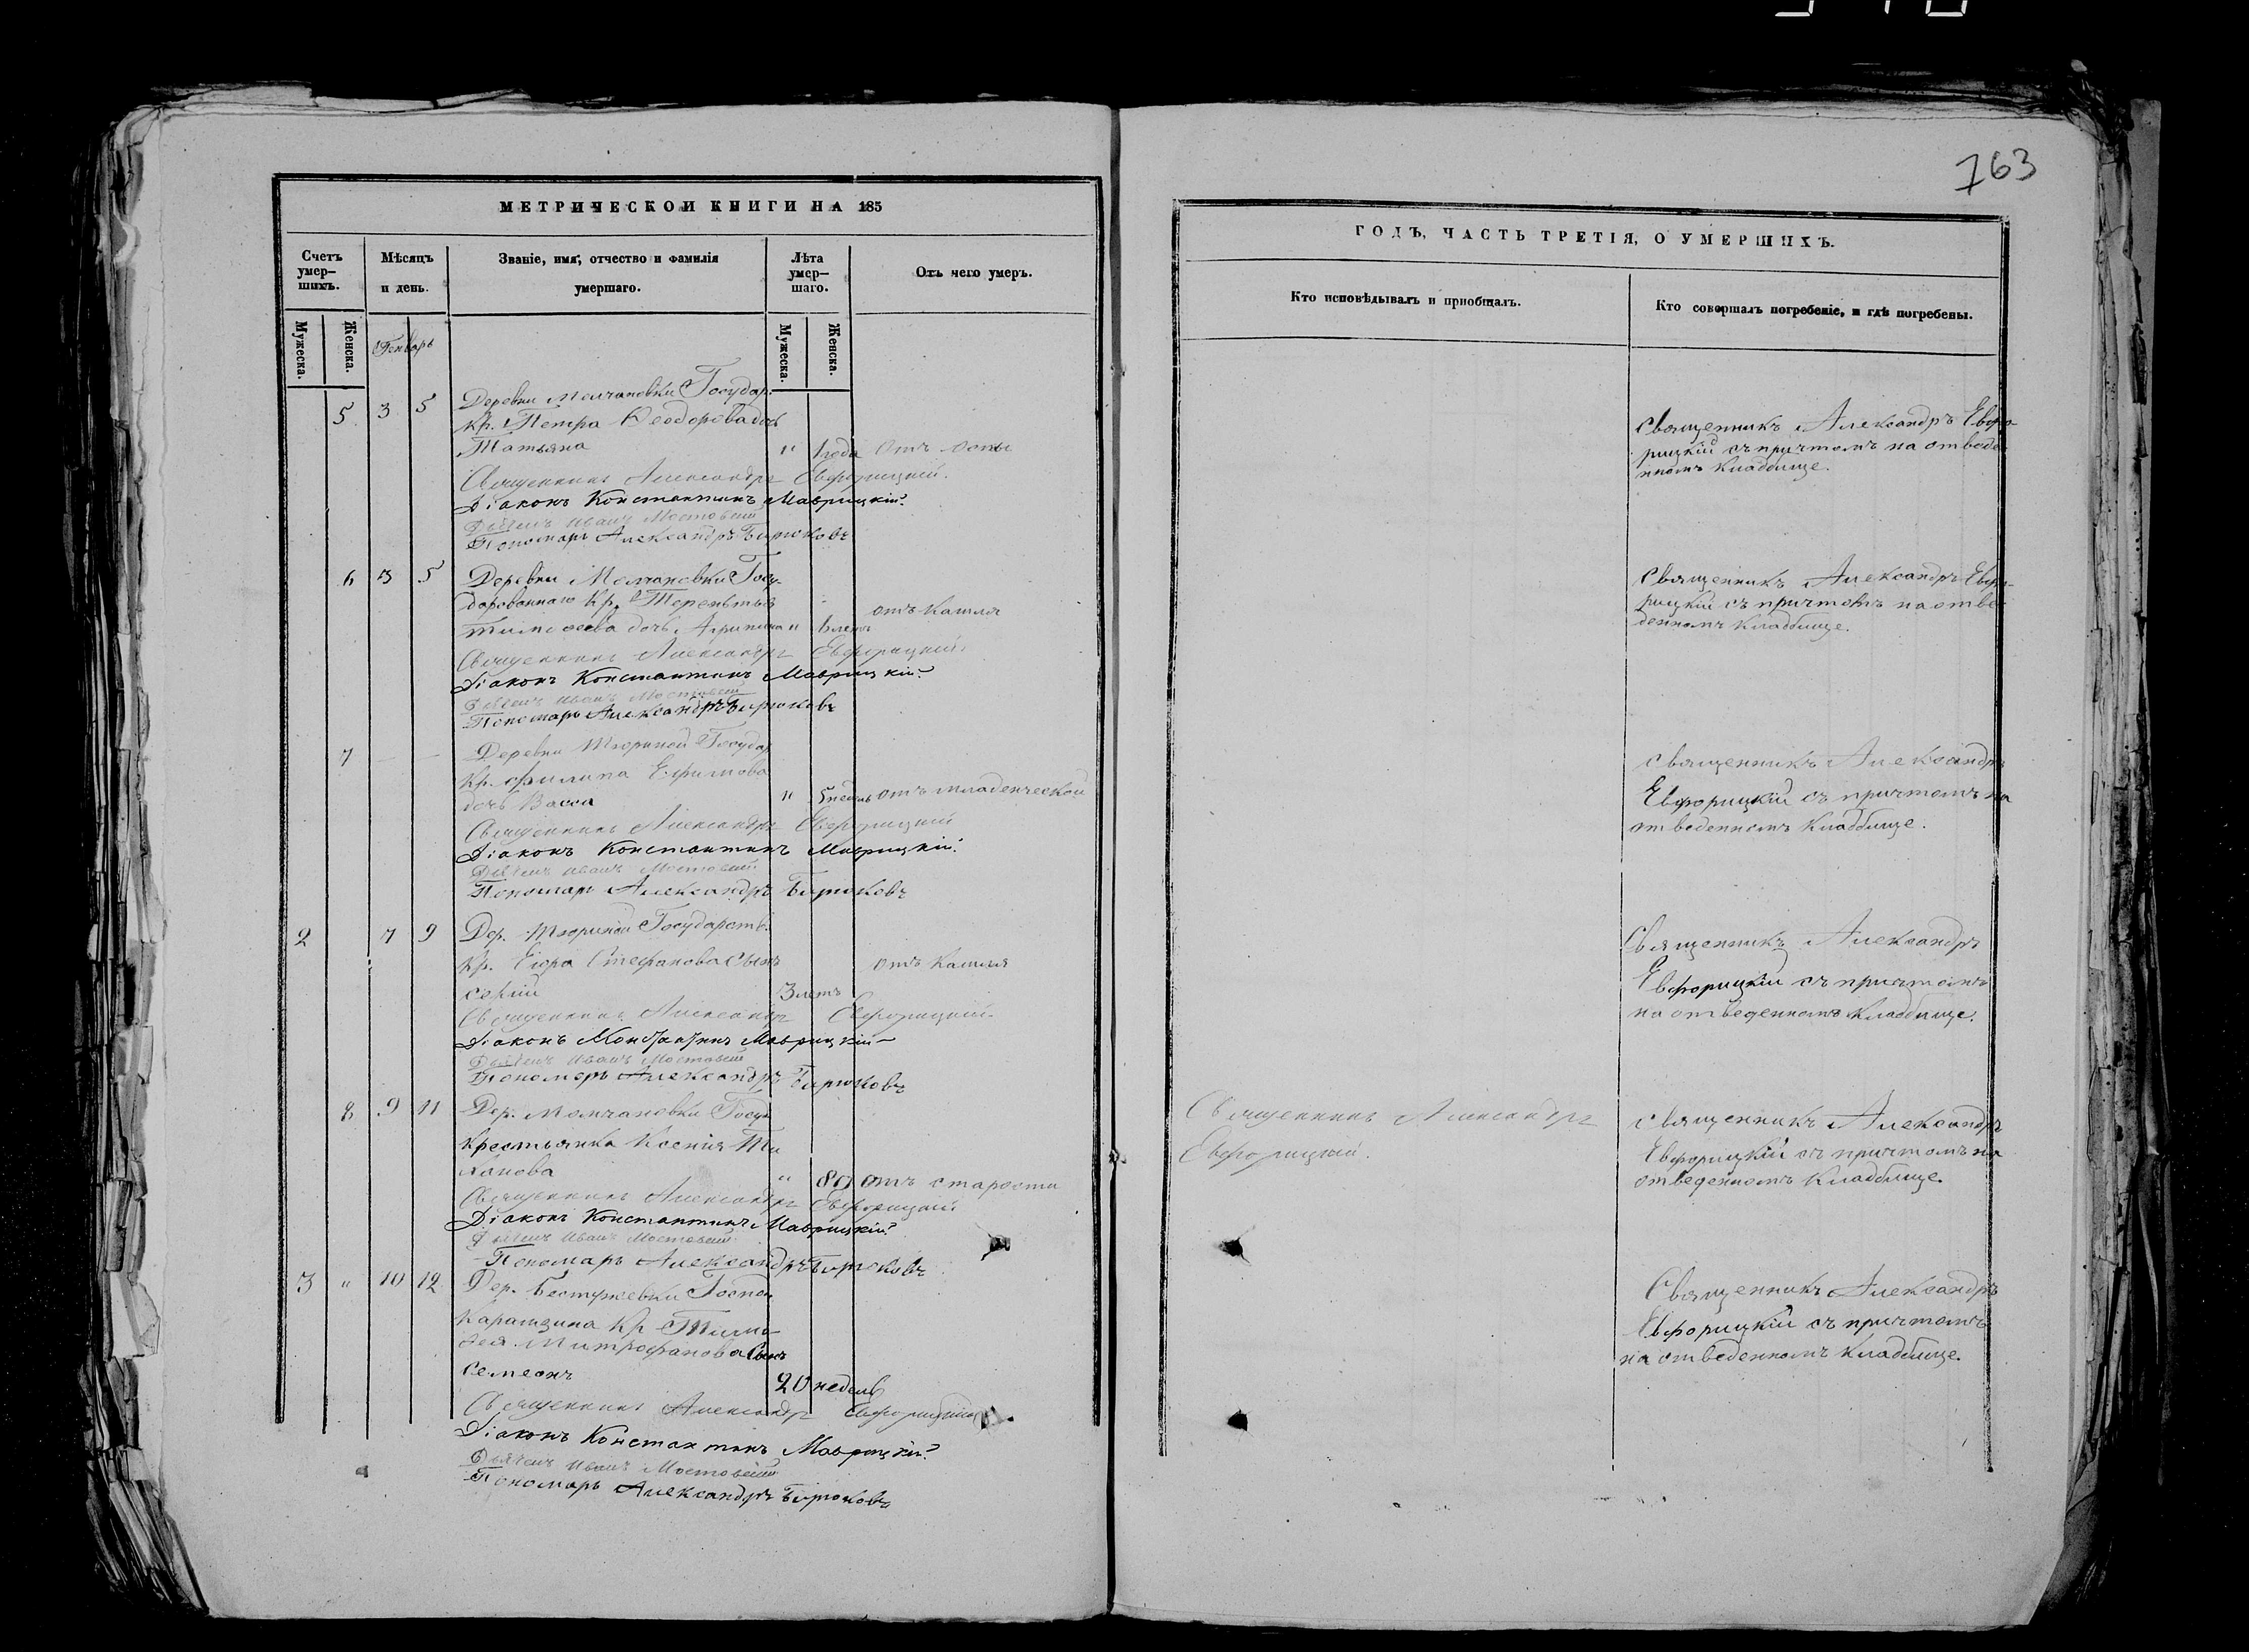 763
МЕТРИЧЕСКОЙ КНИГИ НА 185
Счетъ умер-шихъ.
Мѣсяцъ и день.
Званіе, имя, отчество и фамилія умершаго.
Лѣта умер-шаго.
Отъ чего умеръ.
Мужеска.
Женска.
Мужеска.
Женска.
Генварь
5 3 5 Деревни Молчановки Государ.
Кр. Петра Ѳеодорова дочь
Татьяна " 1 года отъ оспы
Священникъ Александръ Евфорицкій.
Діаконъ Константинъ Маврицкій.
Дьячекъ Иванъ Мостовскій
Пономарь Александръ Бирюковъ
6 3 5 Деревни Молчановки Госу-
дарственнаго Кр. Терентья
Тимофеева дочь Агрипина " лета отъ кашля
Священникъ Александръ Евфорицкій.
Діаконъ Константинъ Маврицкій.
Дьячекъ Иванъ Мостовскій
Пономарь Александръ Бирюковъ
7 — — Деревни Тюриной Государ
Кр. Филипа Ефимова
дочь Васса " 5 недель отъ младенческой
Священникъ Александръ Евфорицкій
Діаконъ Константинъ Маврицкій.
Дьячекъ Иванъ Мостовскій
Пономарь Александръ Бирюковъ
2 7 9 Дер. Тюриной Государств.
Кр. Егора Стефанова сынъ отъ кашля
Сергій 3 летъ
Священникъ Александръ Евфорицкій
Діаконъ Константинъ Маврицкій
Дьячекъ Иванъ Мостовскій
Пономарь Александръ Бирюковъ
8 9 11 Дер. Молчановки Госуд
крестьянка Ксенія Ти
ханова " 80 отъ старости
Священникъ Александръ Евфорицкій
Діаконъ Константинъ Маврицкій
Дьячекъ Иванъ Мостовскій
Пономарь Александръ Бирюковъ
3 " 10 12 Дер. Бестужевки Госпо
Карамзина Кр. Тимо-
фея Митрофанова сынъ
Семеонъ 20 недель
Священникъ Александръ Евфорицкій
Діаконъ Константинъ Маврицкій
Дьячекъ Иванъ Мостовскій
Пономарь Александръ Бирюковъ
ГОДЪ, ЧАСТЬ ТРЕТІЯ, О УМЕРШИХЪ.
Кто исповѣдывалъ и пріобщалъ.
Кто совершалъ погребеніе, и гдѣ погребены.
Священникъ Александръ Евфо-
рицкій съ причтомъ на отведе
нномъ кладбище.
Священникъ Александръ Евфо-
рицкій съ причтомъ на отве-
денномъ кладбище.
Священникъ Александръ
Евфорицкій съ причтомъ на
отведенномъ кладбище.
Священникъ Александръ
Евфорицкій съ причтомъ
на отведенномъ кладбище.
Священникъ Александръ
Евфорицкій.
Священникъ Александръ
Евфорицкій съ причтомъ на
отведенномъ кладбище.
Священникъ Александръ
Евфорицкій съ причтомъ
на отведенномъ кладбище.